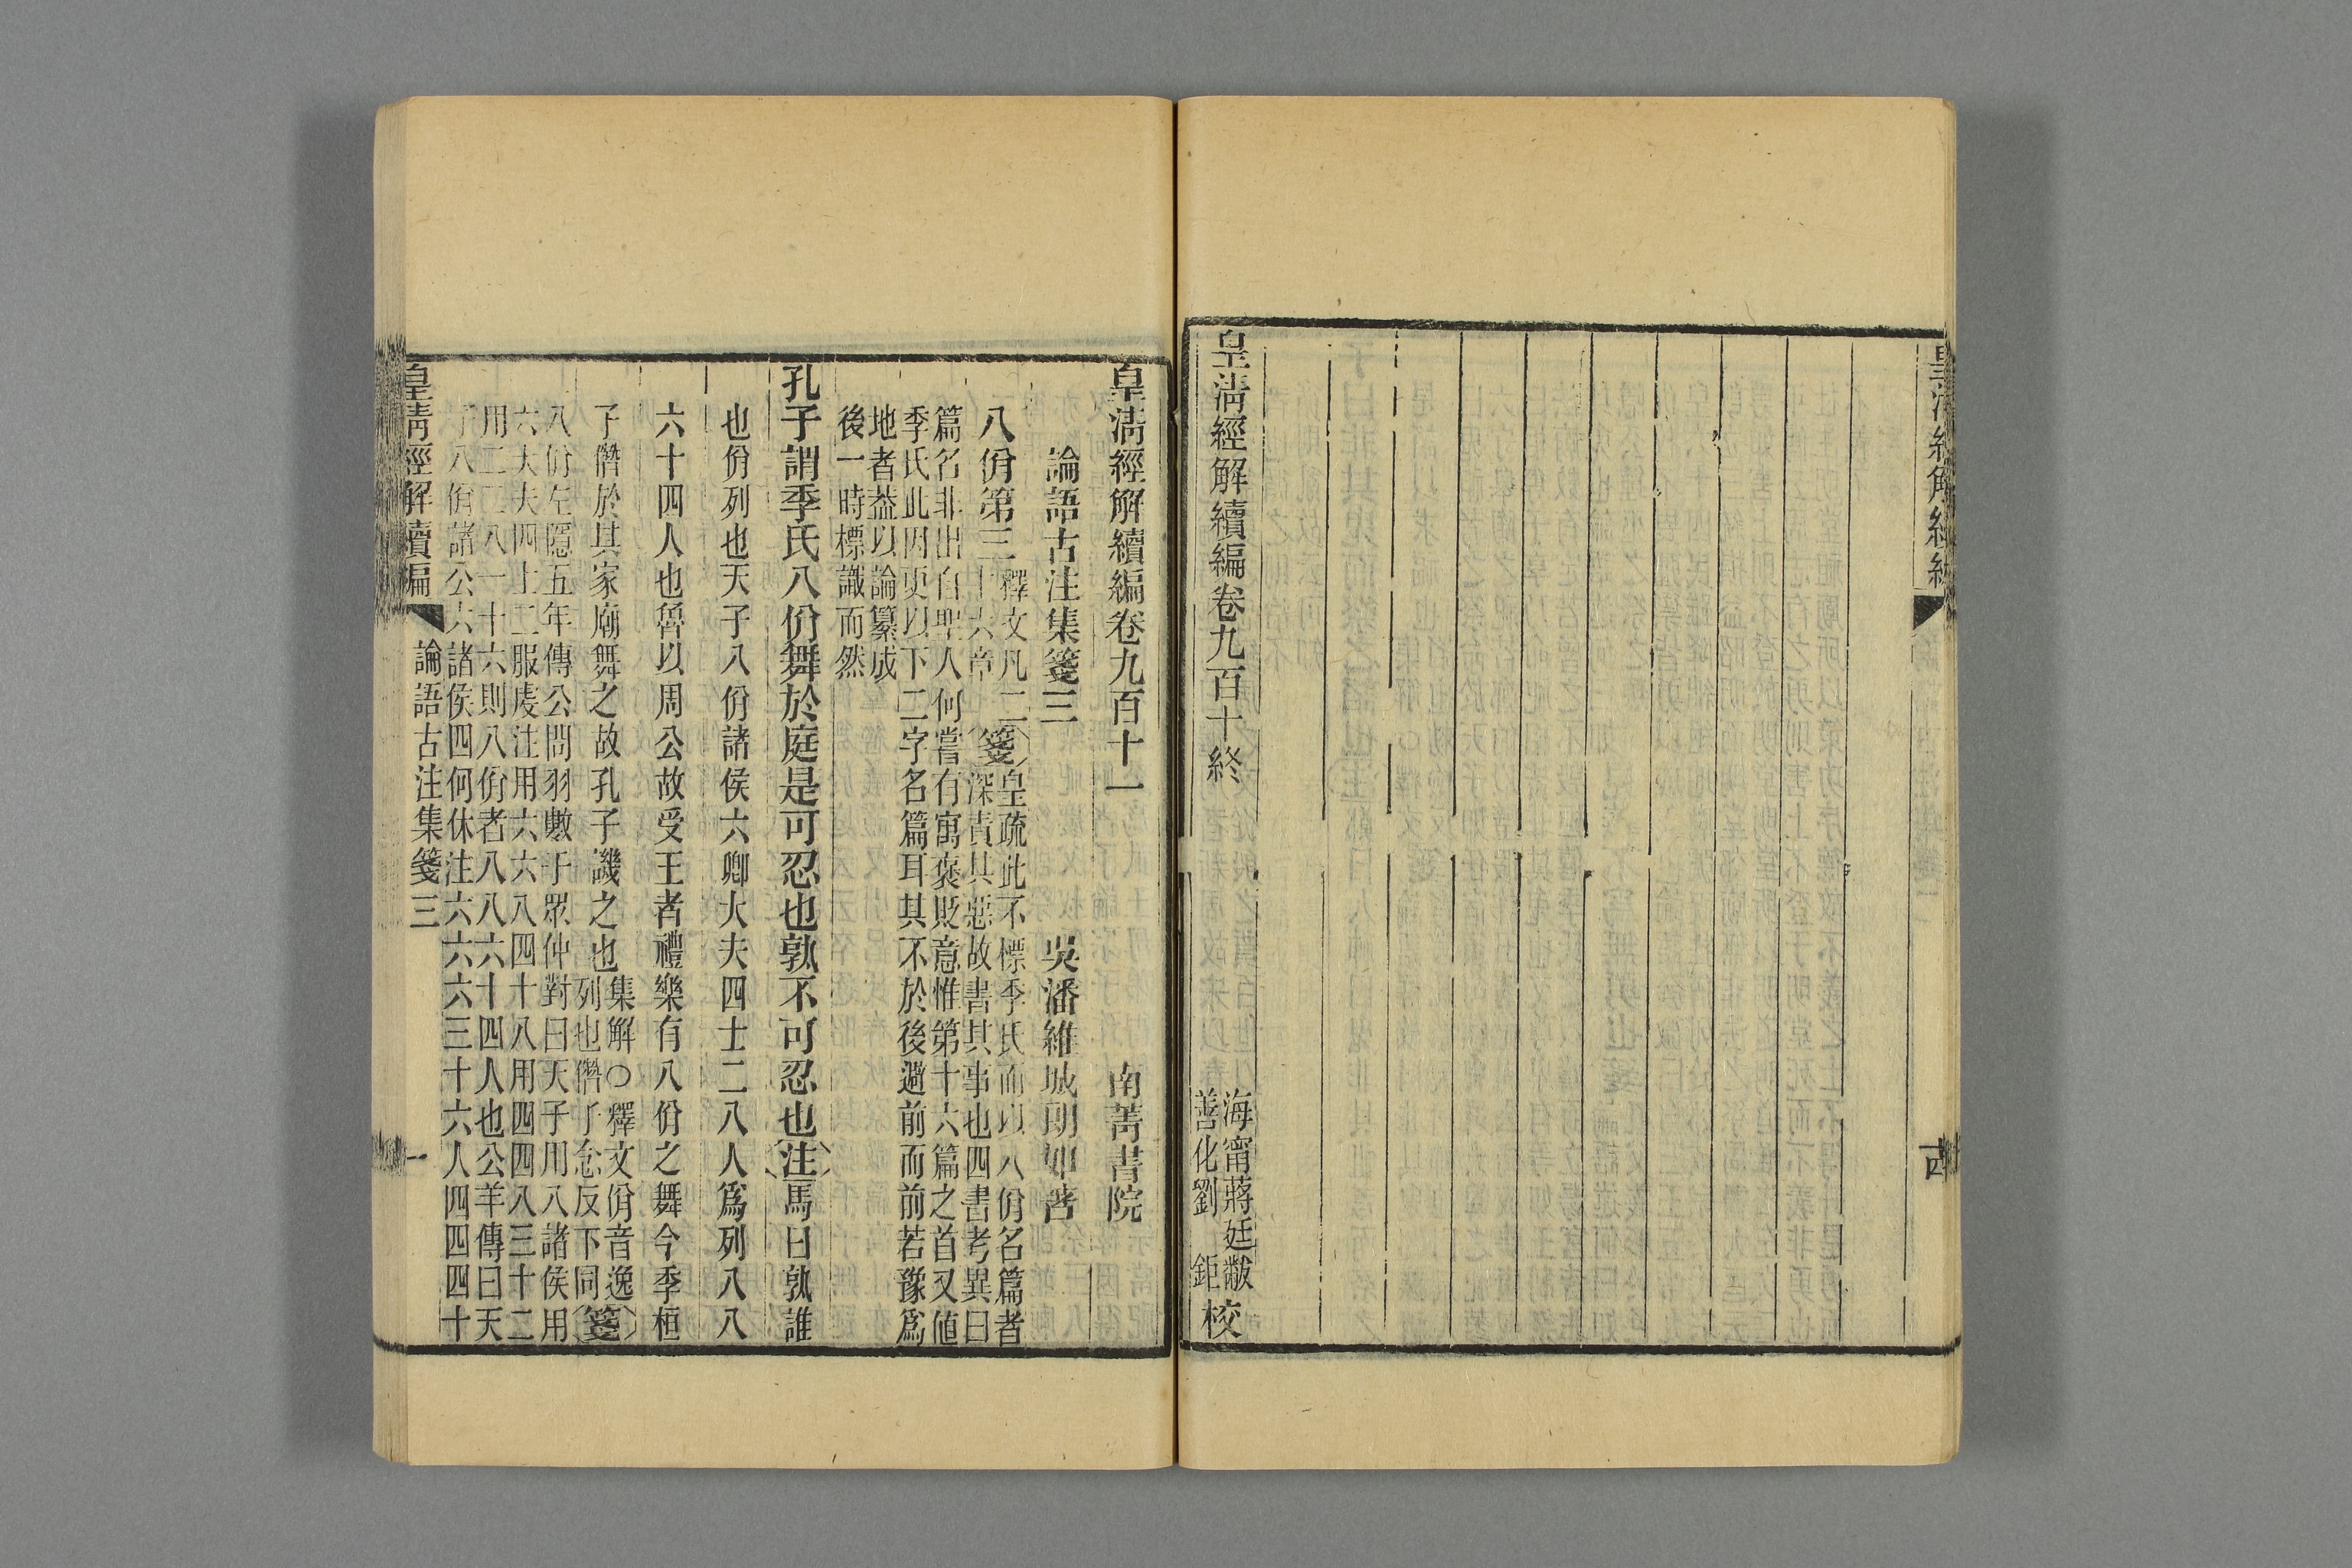 皇清經解續編卷九百十終
海甯蔣廷黻
善化劉 鉅
校
皇清經解續編卷九百十一 南菁書院
論語古注集箋三 吳潘維城朗如著
八佾第三
釋文凡二
十六章
箋
皇疏此不標季氏而以八佾名篇者
深責其惡故書其事也四書考異曰
篇名非出自聖人何嘗有寓褒貶意惟第十六篇之首又值
季氏此因更以下二字名篇耳其不於後遡前而前若豫爲
地者葢以論纂成
後一時標識而然
孔子謂季氏八佾舞於庭是可忍也孰不可忍也注馬曰孰誰
也佾列也天子八佾諸侯六卿大夫四士二八人爲列八八
六十四人也魯以周公故受王者禮樂有八佾之舞今季桓
子僭於其家廟舞之故孔子譏之也
集解○釋文佾音逸
列也僭子念反下同
箋
八佾左隱五年傳公問羽數于眾仲對曰天子用八諸侯用
六大夫四士二服虔注用六六八四十八用四四八三十二
用二二八一十六則八佾者八八六十四人也公羊傳曰天
子八佾諸公六諸侯四何休注六六六三十六人四四四十
皇清經解續編 論語古注集箋三 一